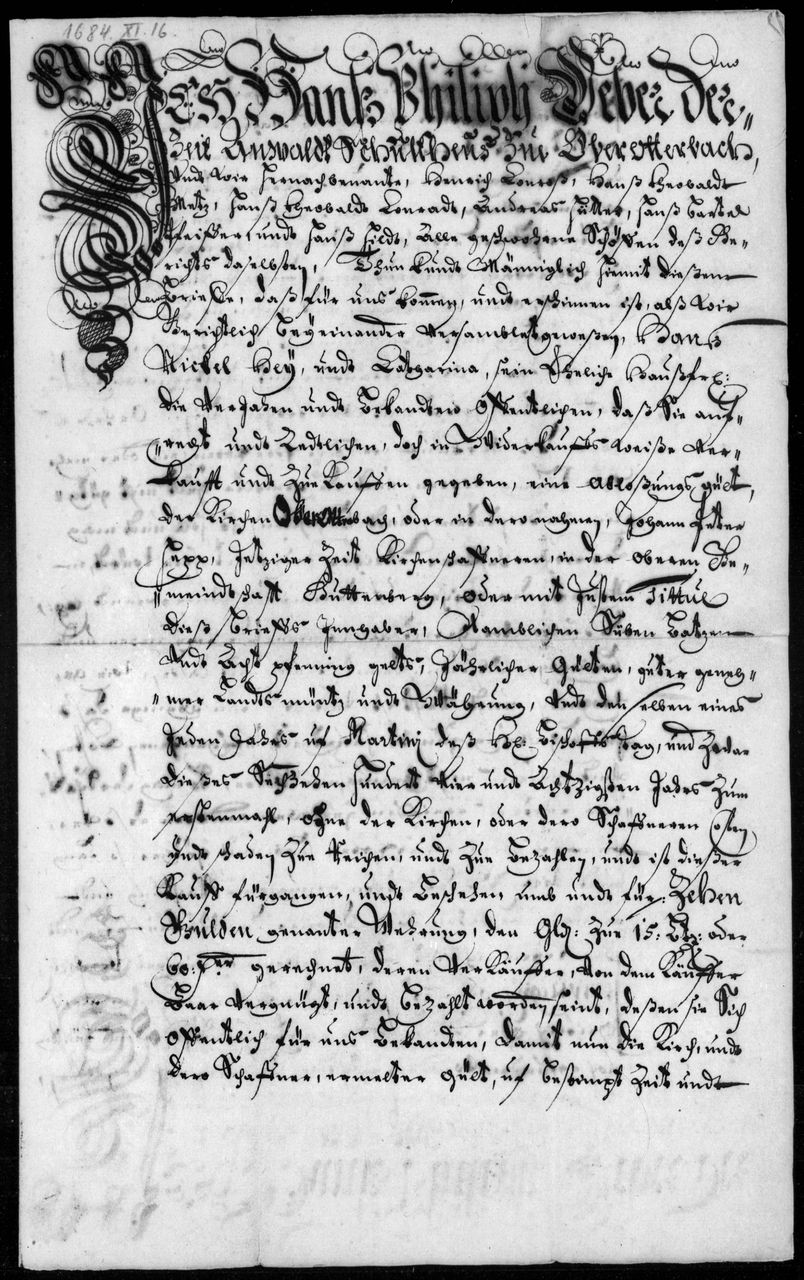 1684. XI. 16.
ICH Hanß Philips Weber der¬
Zeit Anwaldt Schultheiß Zue Oberotterbach,
Undt Wir hernachbenante, Henrich Conrath, Hanß Theobaldt
Metz, Hanß Theobaldt Conradt, Andreas Sutter, Hanß Bartel
Pfeiffer, undt Hanß Hildt, Alle geschwohrne Schöffen deß Ge¬
richts daselbsten, Thun kundt Männiglich hiemit dießem
Brieffe, daß für uns kommen, undt erschinnen ist, alß Wir
Gerichtlich beyeinander Versamblet geweßen, Hanß
Nickel Hey, undt Catharina, sein Eheliche Haußfr:
die Verjahen undt Bekandten Offentlichen, daß Sie auf¬
recht undt Redtlichen, doch in Widerkauffs weiße Ver¬
kaufft undt Zue Kauffen gegeben, eine Abloßungs gült,
der Kirchen Oberotterbach, oder in dero nahmen, Johann Peter
Happ, Jetziger Zeit Kirchenschaffneren, in der Oberen Ge¬
meindtschafft Guttenberg, oder mit Justem Tittul
dieß Brieffs Innhaber, Namblichen Siben Batzen
Undt Acht pfenning gelts, Jährlicher Gülten, guter geneh¬
mer Landts müntz undt Währung, Undt denselben eines
Jeden Jahrs uf Martinj deß Hl: Bischoffs tag, und Zwar
dießes Sechzehen Hundert Vier undt Achtzigsten Jahrs Zum
erstenmahl, ohne der Kirchen, oder dero Schaffneren Costen
Undt schaden Zue Reichen, undt Zue Bezahlen, undt ist dießer
Kauff fürgangen, undt Beschehen umb undt für: Zehen
Gulden genanter Wehrung, den Gld: Zue 15: Btz: oder
60: Xer gerechnet, deren Verkäuffer, Von dem Käuffer
Baar Vergnügt, undt bezahlt worden seint, deßen sie Sich
Offentlich für uns Bekandten, damit nun die Kirch, undt
dero Schaffner, ermelter Gült, uf bestimpt Zeit undt